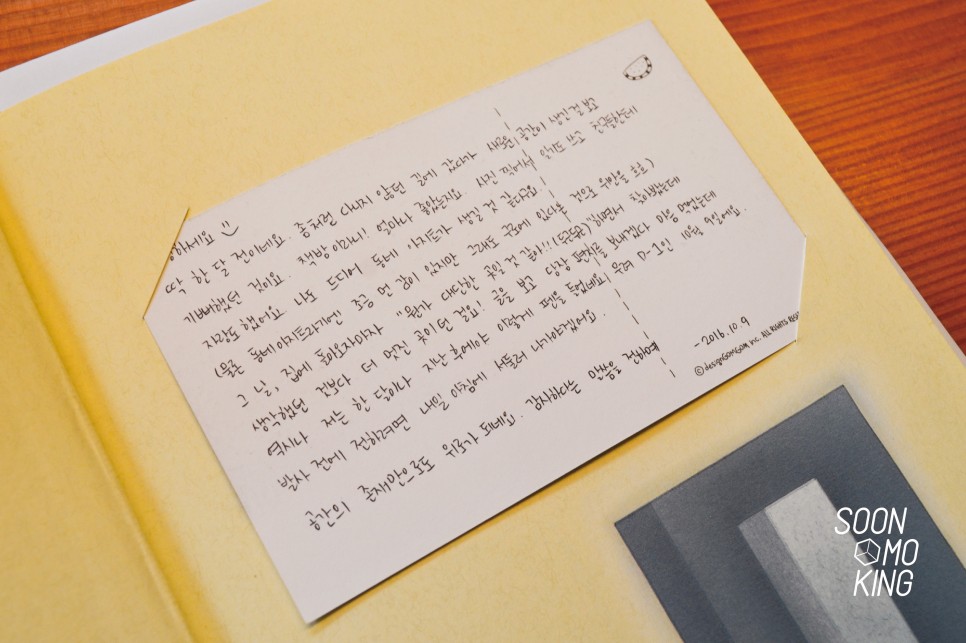 하세요 :)
딱 한 달 전이네요. 종처럼 다니지 않던 길에 갔다가 새로운 공간이 생긴걸 보고
기뻐했던 것이요. 책방이라니! 얼마나 좋았는지요. 사진 찍어서 일기도 쓰고 친구들한테
자랑도 했어요. 나도 드디어 동네 아지트가 생길 것 같다구요.
(물론 동네 아지트라기엔 조금 먼 감이 있지만 그래도 구로에 있다는 것으로 위안을 호호)
그 날, 집에 돌아오자마자 "뭔가 대단한 곳일 것 같아!!(두근두근)"하면서 찾아봤는데
생각했던 것보다 더 멋진 곳이던 걸요! 글을 보고 당장 편지를 보내겠다 마음 먹었는데
역시나 저는 한 달이나 지난 후에야 이렇게 펜을 들었네요! 무려 D-1인 10월 9일에요.
발사 전에 전하려면 내일 아침에 서둘러 나가야겠어요.
공간의 존재만으로도 위로가 되네요. 감사하다는 말씀을 전하며
-2016.10.9
©designGOMGOM, Inc. ALL RIGHTS
SOON
MO
KING